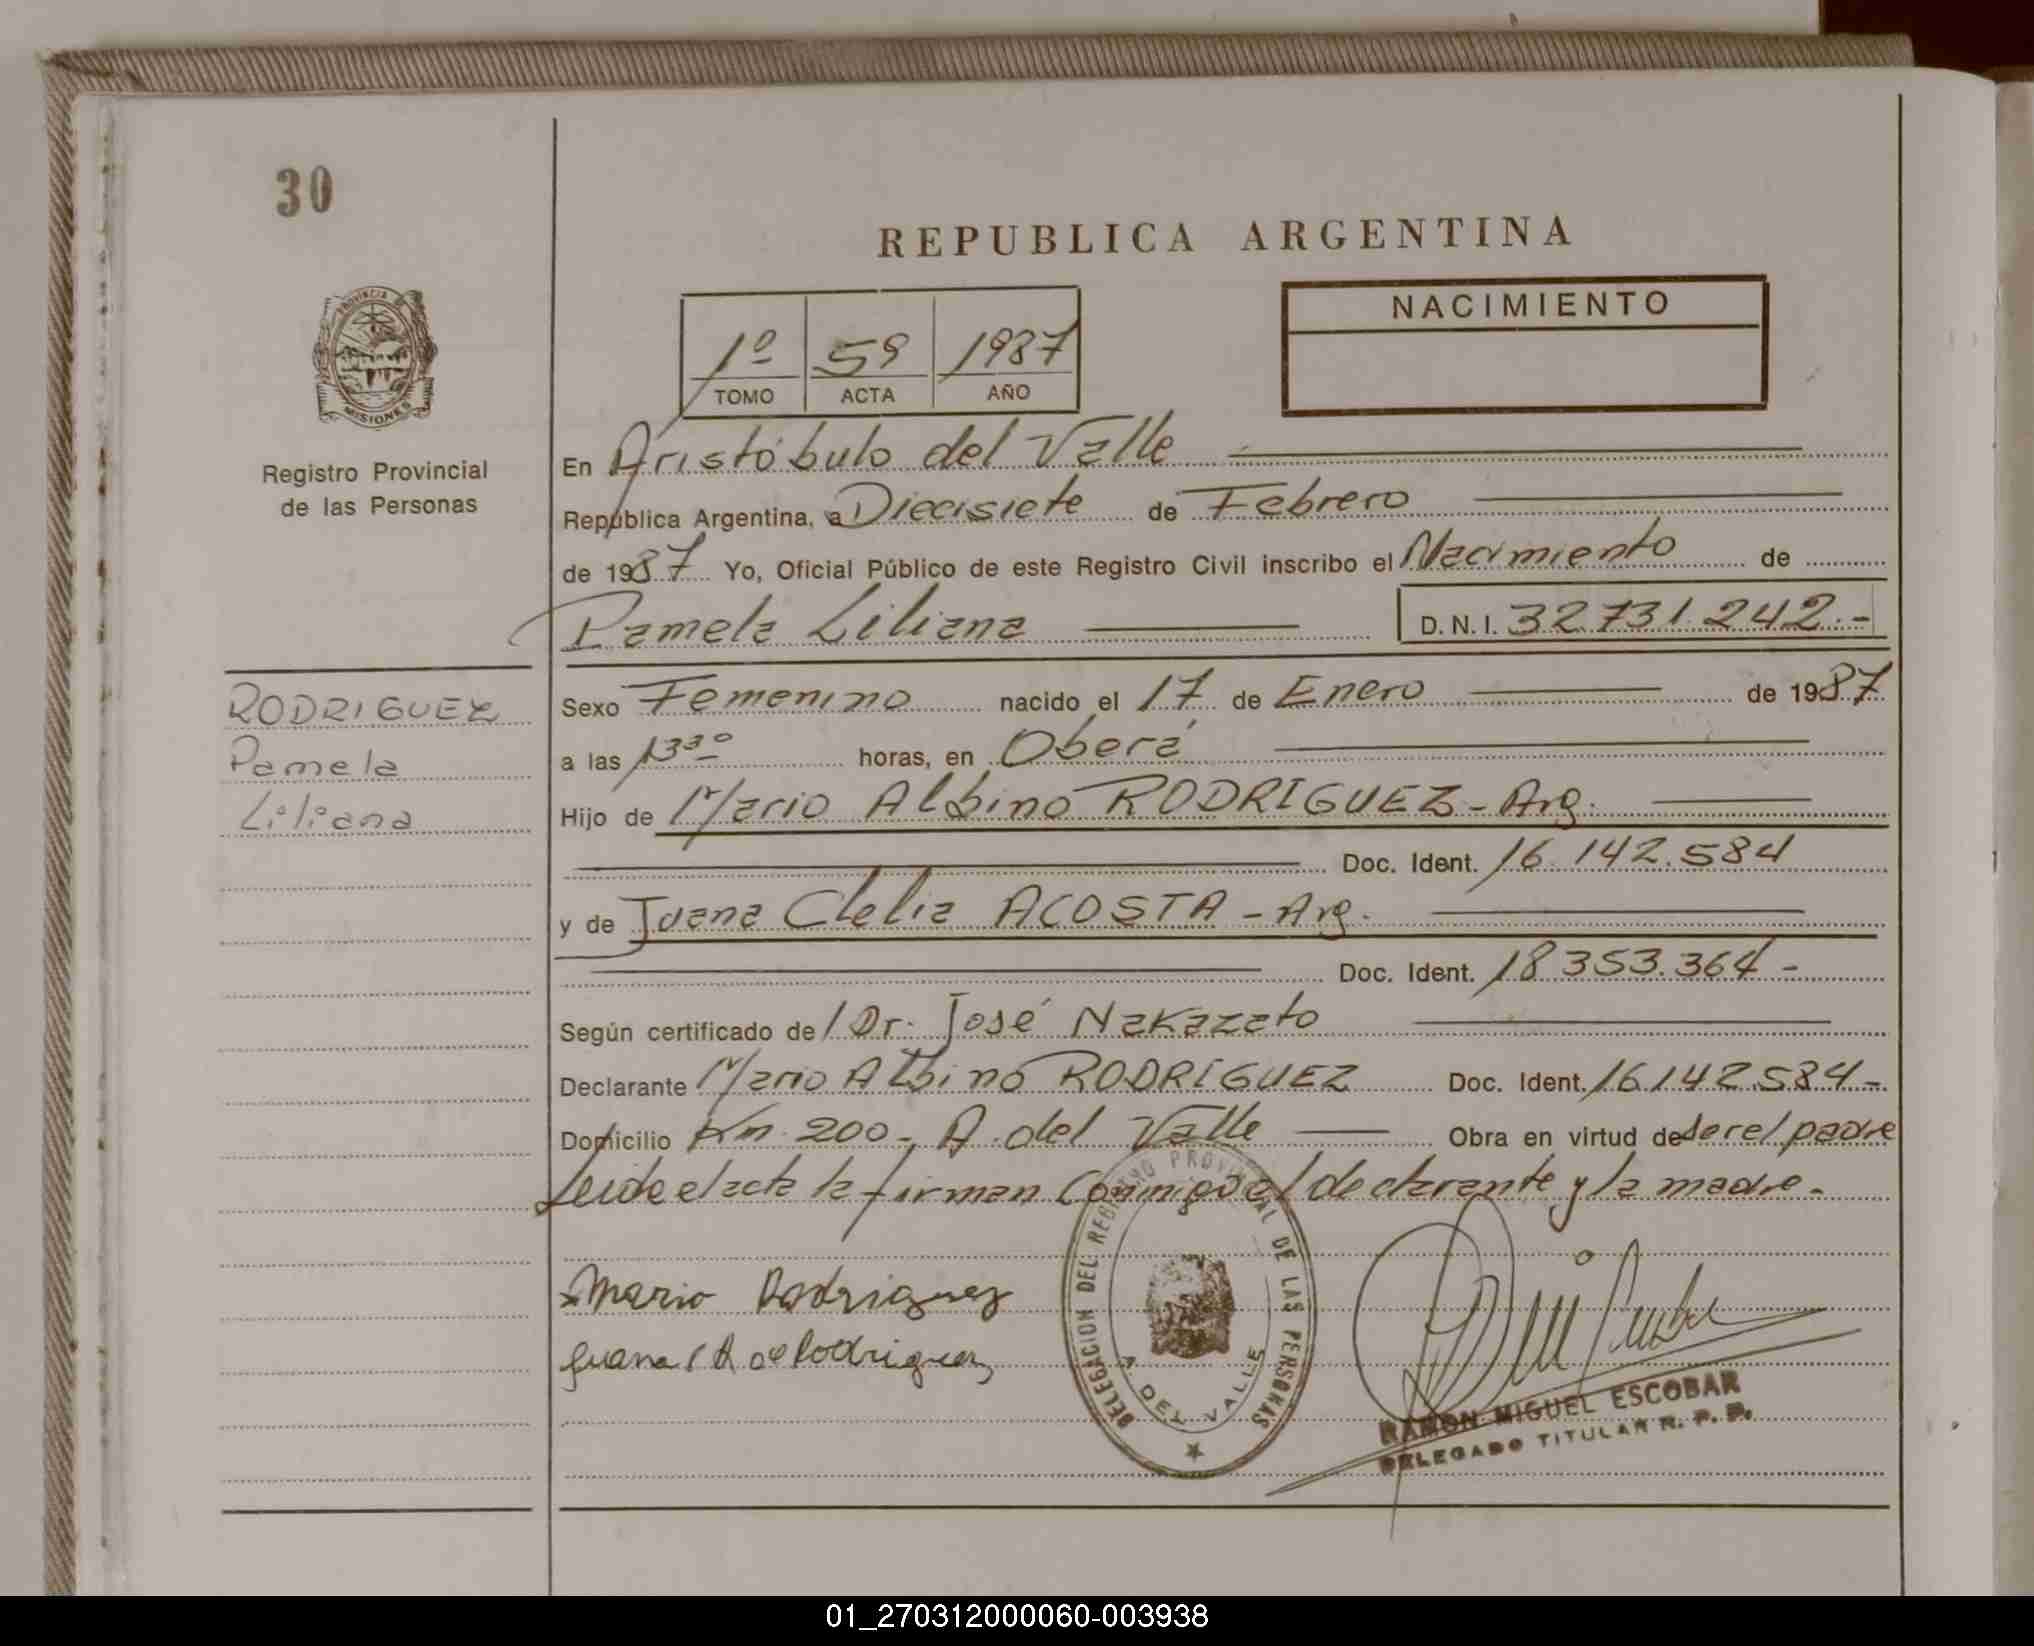 30
REPUBLICA ARGENTINA
NACIMIENTO
1º 59 1987
TOMO ACTA AÑO
PROVINCIA DE
MISIONES
Registro Provincial
de las Personas
En Aristóbulo del Valle
República Argentina, a Diecisiete de Febrero
de 1987 Yo, Oficial Público de este Registro Civil inscribo el Nacimiento de
Pamela Liliana D.N.I. 32731.242.-
RODRIGUEZ
Pamela
Liliana
Sexo Femenino nacido el 17 de Enero de 1987
a las 13³⁰ horas, en Oberá
Hijo de Mario Albino RODRIGUEZ - Arg.
Doc. Ident. 16.142.584
y de Juana Clelia ACOSTA - Arg.
Doc. Ident. 18.353.364 -
Según certificado de Dr. José Nakazato
Declarante Mario Albino RODRIGUEZ Doc. Ident. 16142.584-
Domicilio Km 200- A. del Valle Obra en virtud de ser el padre
Leida el acta la firman Conmigo el declarante y la madre.
Mario Rodriguez
Juana A de Rodriguez
DELEGACION DEL REGISTRO PROVINCIAL DE LAS PERSONAS
A. DEL VALLE
RAMON MIGUEL ESCOBAR
DELEGADO TITULAR R. P. P.
01_270312000060-003938